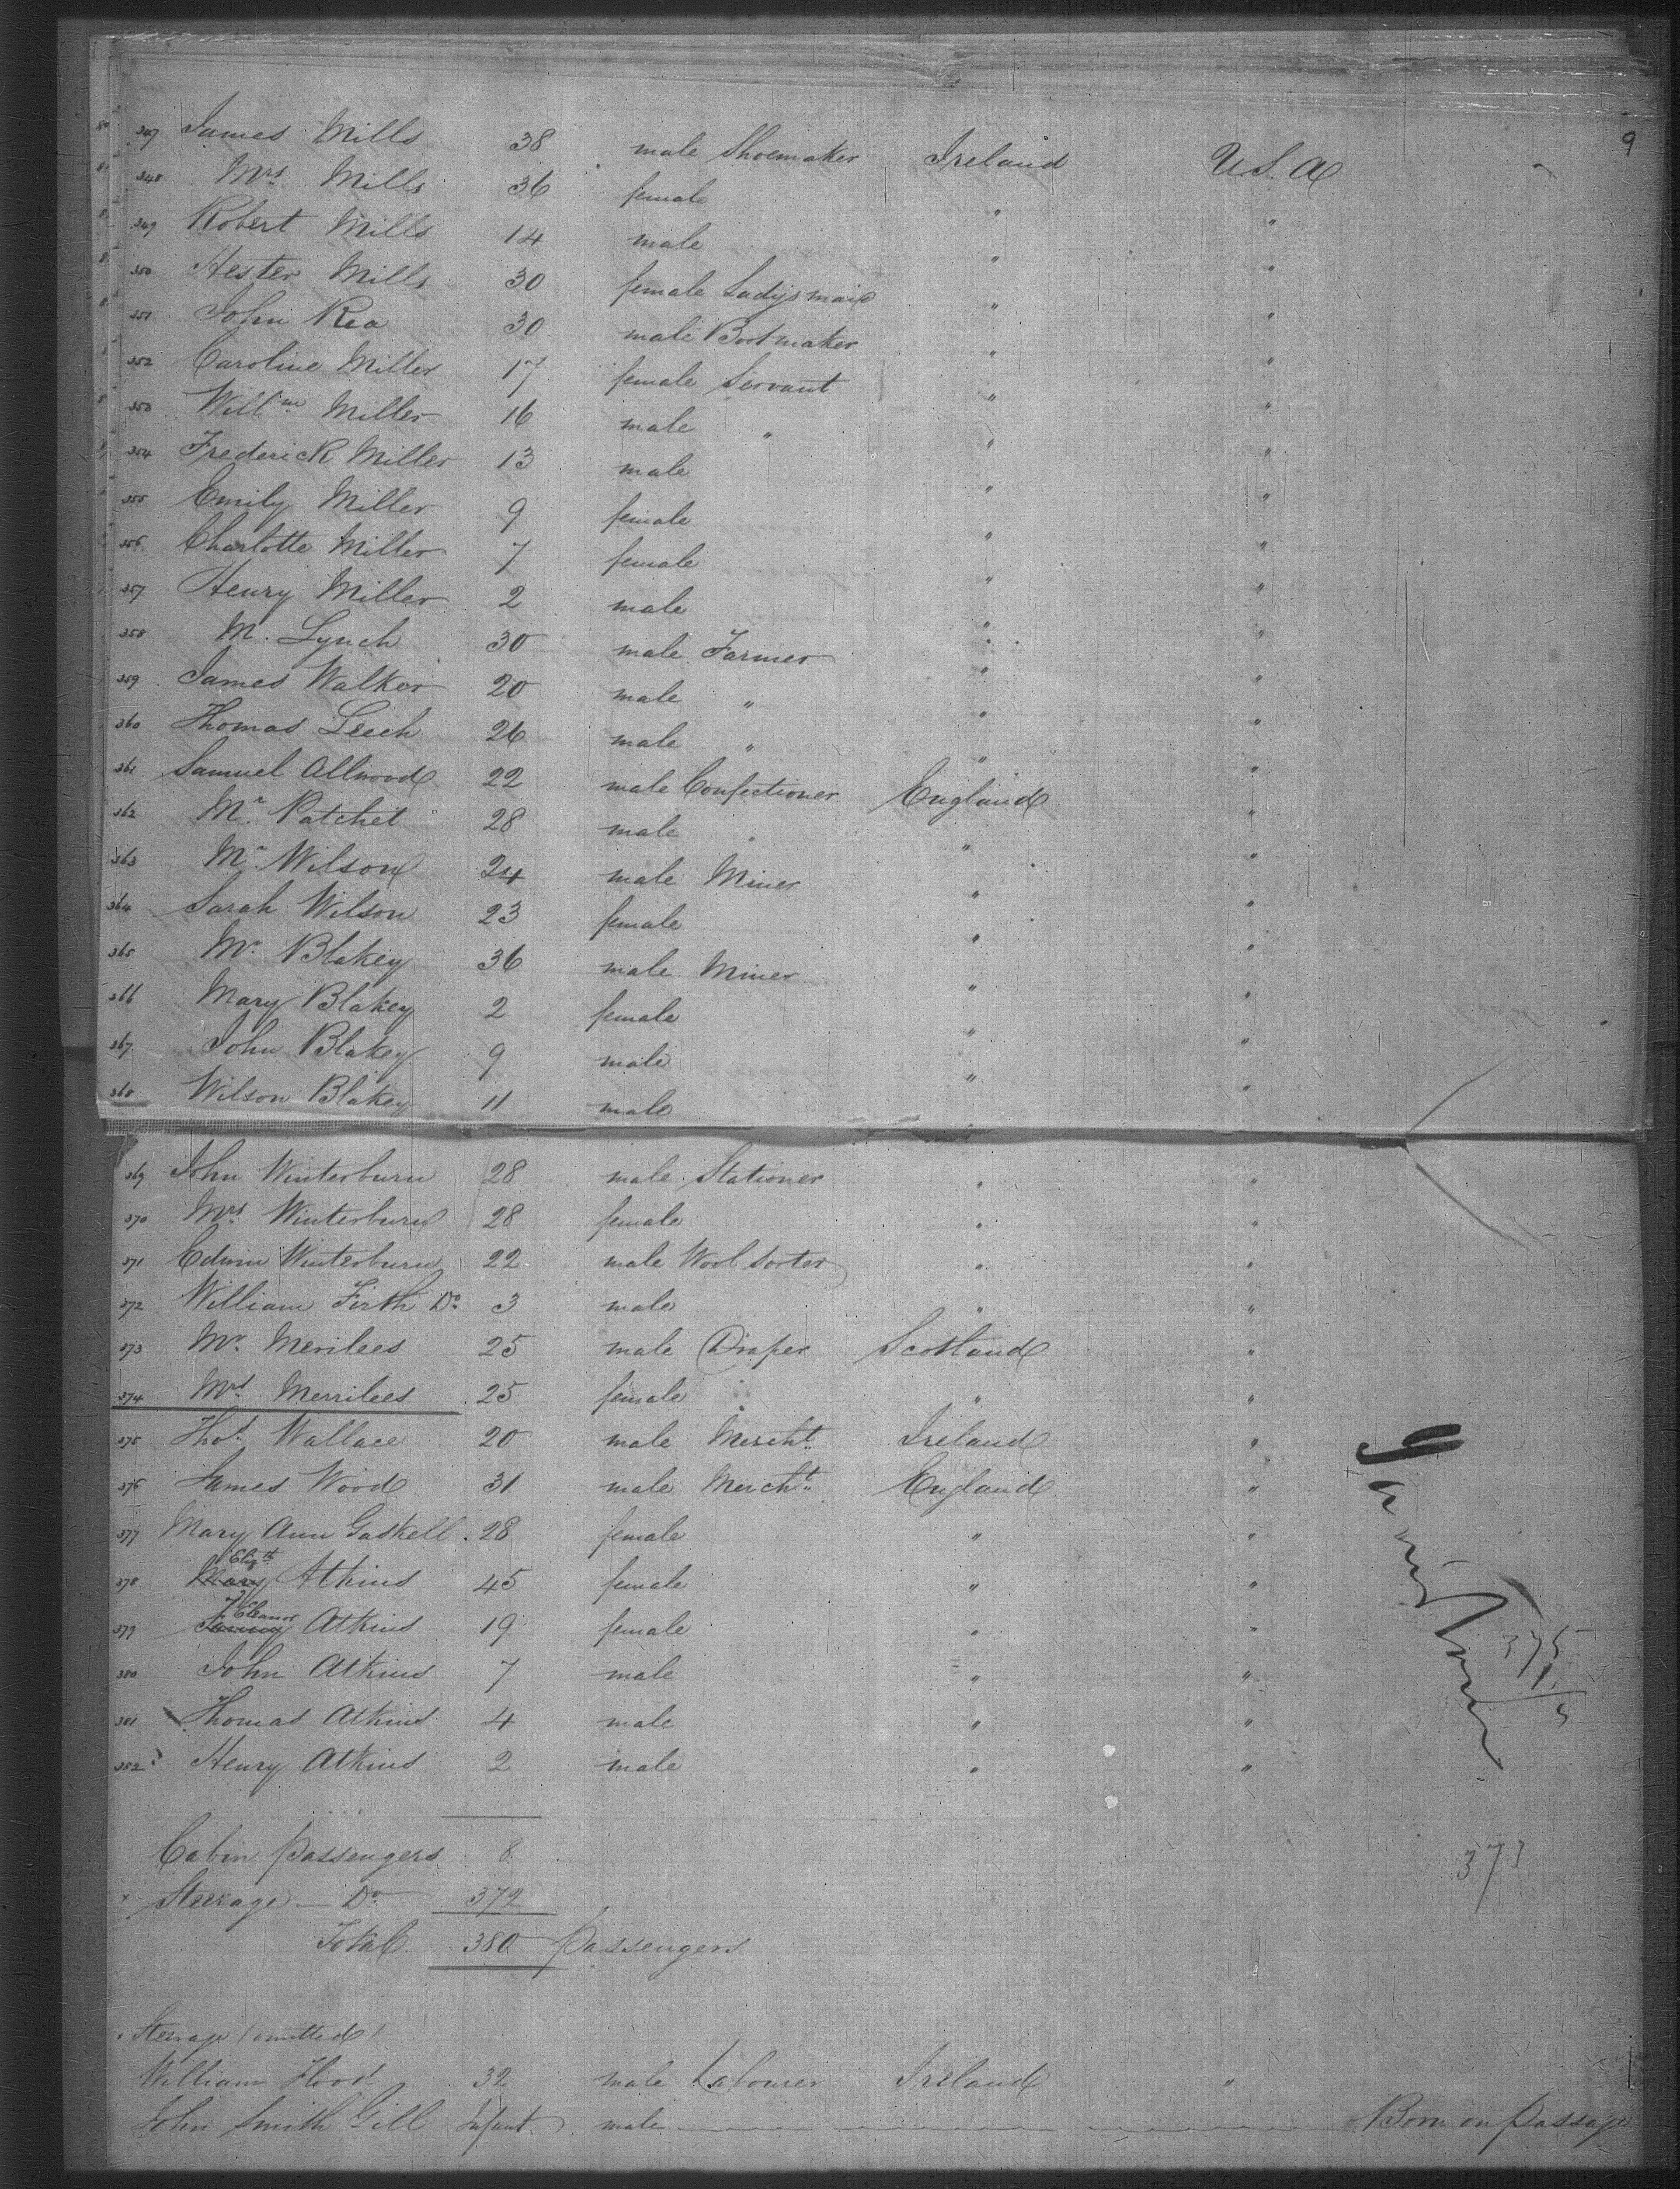 9
347 James Mills 38 male Shoemaker Ireland U.S.A
348 Mrs Mills 36 female " "
349 Robert Mills 14 male " "
350 Hester Mills 30 female Ladysmaid " "
351 John Rea 30 male Bootmaker " "
352 Caroline Miller 17 female Servant " "
353 Willm Miller 16 male " " "
354 Frederick Miller 13 male " "
355 Emily Miller 9 female " "
356 Charlotte Miller 7 female " "
357 Henry Miller 2 male " "
358 M. Lynch 30 male Farmer " "
359 James Walker 20 male " " "
360 Thomas Leech 26 male " " "
361 Samuel Allwood 22 male Confectioner England "
362 Mr. Patchet 28 male " " "
363 Mr Wilson 24 male Miner " "
364 Sarah Wilson 23 female " "
365 Mr. Blakey 36 male Miner " "
366 Mary Blakey 2 female " "
367 John Blakey 9 male " "
368 Wilson Blakey 11 male
369 John Winterburn 28 male Stationer " "
370 Mrs Winterburn 28 female " "
371 Edwin Winterburn 22 male Wool sorter " "
372 William Firth Do 3 male " "
373 Mr. Merilees 25 male Draper Scotland "
374 Mrs Merrilees 25 female " "
375 Thos. Wallace 20 male Mercht. Ireland "
376 James Wood 31 male Mercht. England "
377 Mary Ann Gaskell 28 female " "
Elizth
378 Mary Atkins 45 female " "
Eleanor
379 Atkins 19 female " "
375
380 John Atkins 7 male " "
381 Thomas Atkins 4 male " "
382 Henry Atkins 2 male " "
Cabin passengers 8
373
Steerage — Do 372
Total 380 passengers
Steerage (omitted)
William Flood 32 male Labourer Ireland "
John Smith Gill Infant male Born on passage